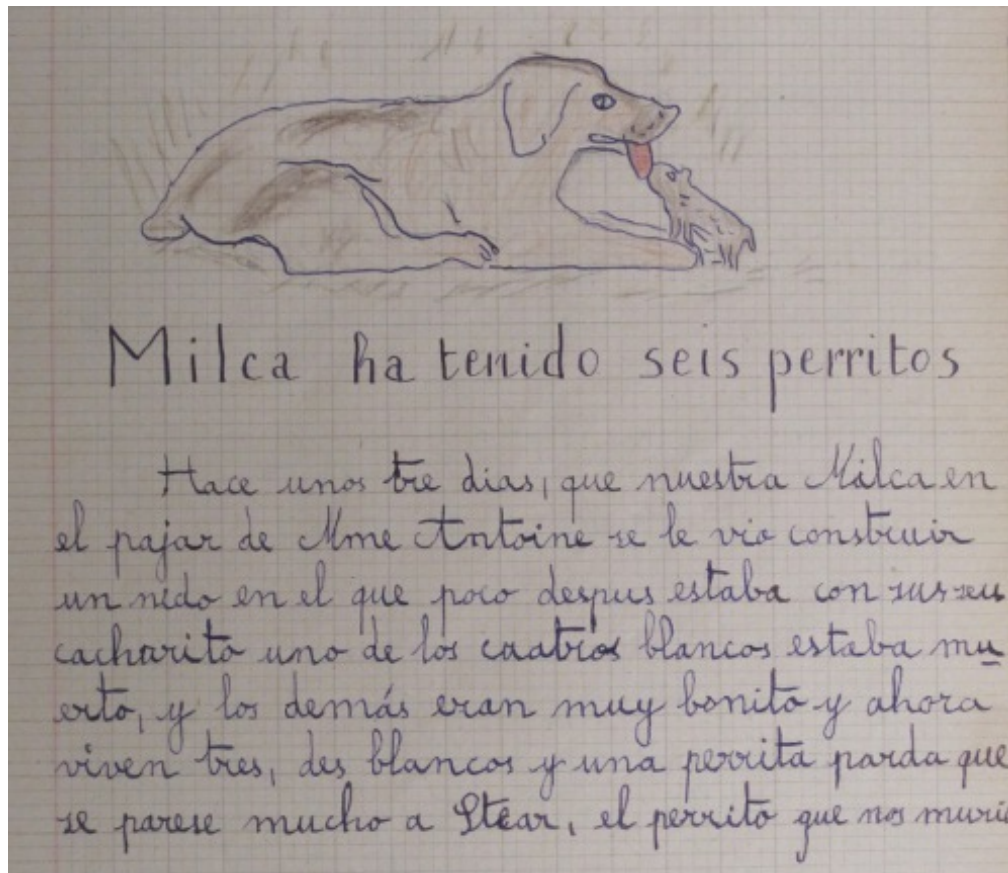 Milca ha tenido seis perritos
Hace unos tre dias, que nuestra Milca en
el pajar de Mme Antoine se le vio construir
un nido en el que poco despus estaba con sus seis
cacharito uno de los cuatros blancos estaba mu
erto, y los demás eran muy bonito y ahora
viven tres, des blancos y una perrita parda que
se parese mucho a Stear, el perrito que nos murio